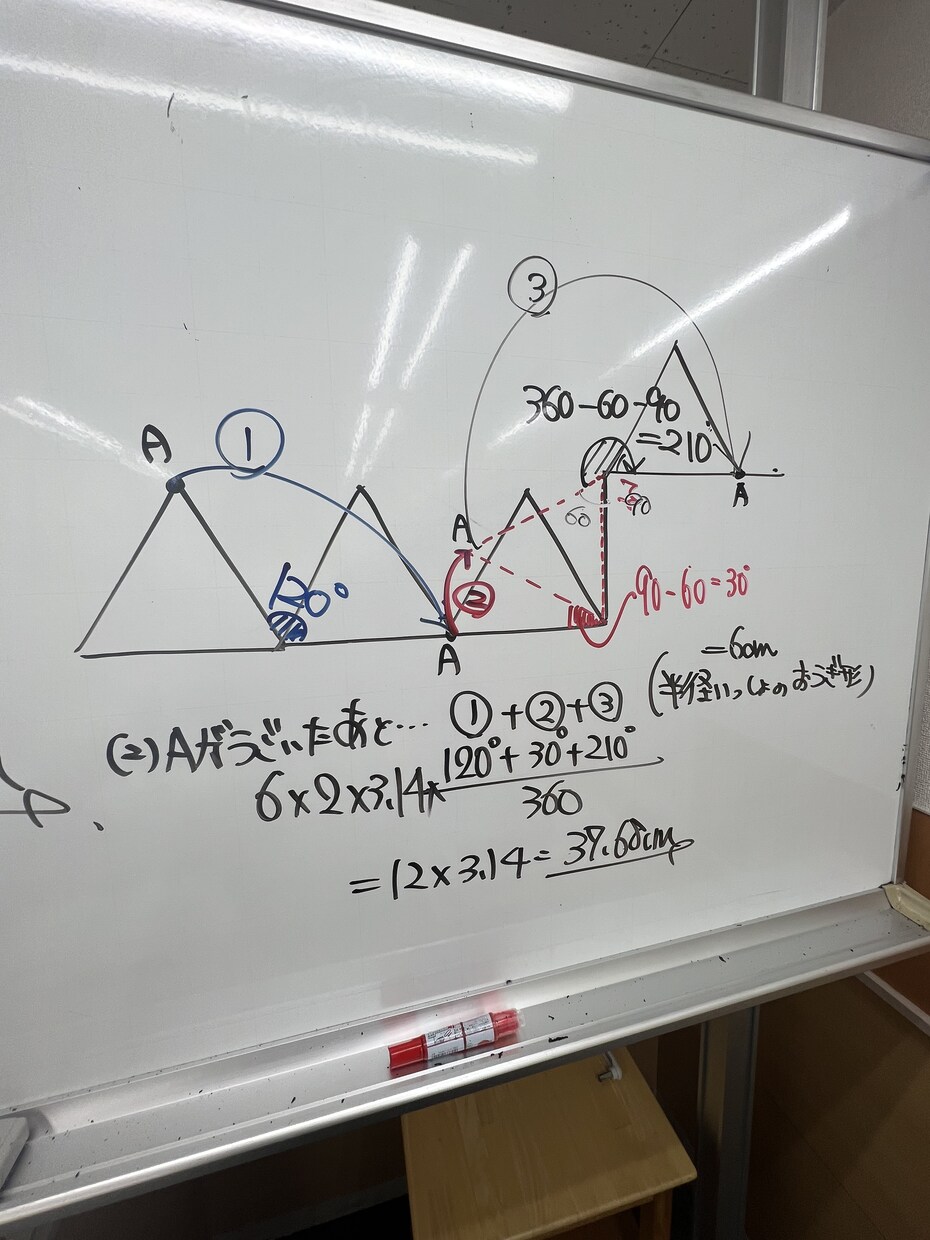 ③
360-60-90
=210°
A
①
A
120°
A
②
60
90
A
90-60=30°
A
=6cm
(2) Aがうごいたあと… ①+②+③ (半径いっしょのおうぎ形)
6×2×3.14×120°+30°+210°/360
=12×3.14=37.68cm